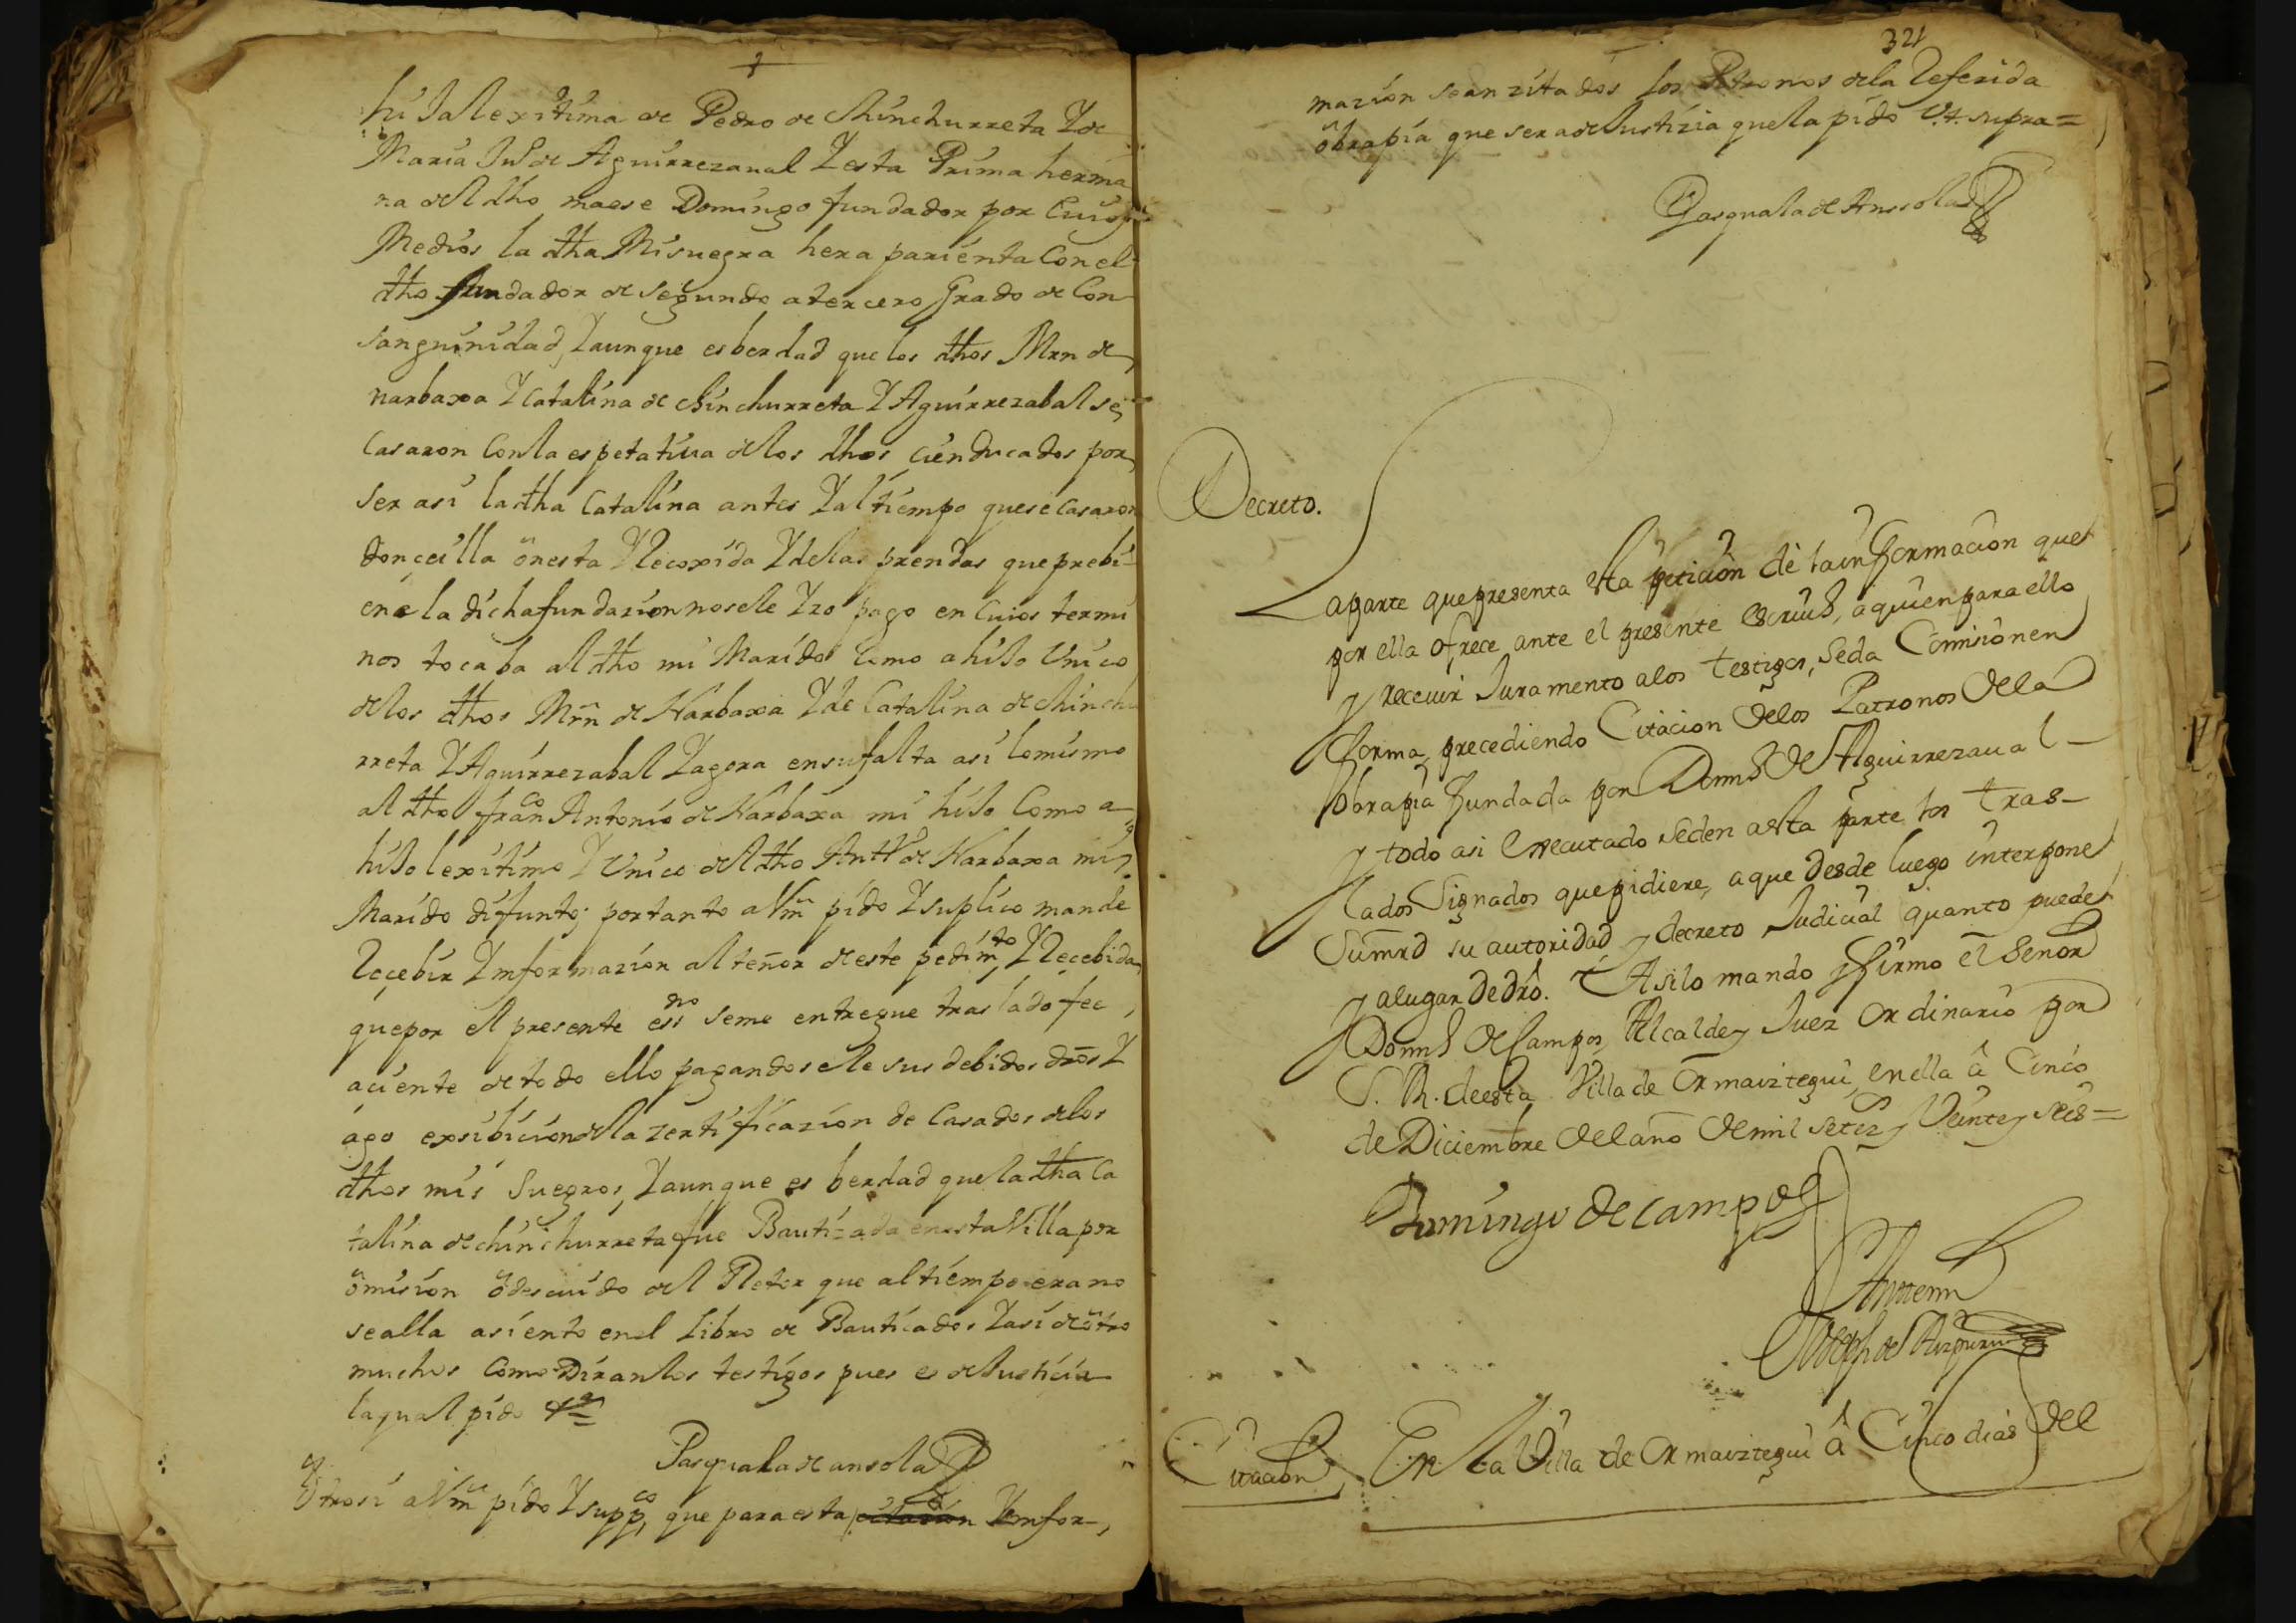 hiJa lexitima de Pedro de chinchurreta Y de
Maria Juº de Aguirrezaual Y esta Prima herma
na del dho maese Domingo fundador por Cuios
Medios la dha Mi suegra hera parienta Con el
dho fundador de segundo a tercero Grado de Con
sanguinidad, Y aunque es berdad que los dhos Mrn de
narbaxa Y Catalina de chinchurreta Y Aguirrezabal se
Casaron Con la espetatiua de los dhos cien ducados por
ser asi la dha Catalina antes Y al tiempo que se Casaron
donçeilla onesta Y Recoxida Y de las prendas que prebi
ene la dicha fundazion no se le Yzo pago en Cuios termi
nos tocaba al dho mi Marido Como a hiJo Vnico
de los dhos Mrn de Narbaxa Y de Catalina de chinchu
rreta Y Aguirrezabal Y agora en su falta asi lo mismo
al dho franco Antonio de Narbaxa mi hiJo Como a
hiJo lexitimo Y Vnico del dho Antto de Narbaxa mi
Marido difunto; por tanto a Vm pido Y suplico mande
Reçebir Ymformazion al tenor de este pedimto, Y Recebida
que por el presente essno se me entregue traslado fee
aciente de todo ello pagandosele sus debidos dros Y
ago exsibicion de la zertificazion de Casados de los
dhos mis Suegros, Y aunque es berdad que la dha Ca
talina de chinchurreta fue Bautizada en esta Villa por
omision o descuido del Retor que al tiempo era no
se alla asiento en el Libro de Bauticados Y asi de otro
muchos Como Diran los testigos pues es de Justicia
la qual pido &a
Pasquala de ansola
Otrosi a Vm pido Y suppco que para esta citasion Ymfor-
321
mazion sean zitados los Patronos de la Referida
obra pia que sera de Justizia que la pido Vt. supra=
Pasquala de Anssola
Decreto.
La parte que presenta esta peticion dè la informacion que
por ella ofrece ante el presente escriuº, a quien para ello
y receuir Juramento a los testigos, se da Comision en
forma, precediendo Citacion de los Patronos de la
obra pia fundada por Domº de Aguirrezaual-
y todo asi executado se den a esta parte los tras-
lados Signados que pidiere, a que desde luego interpone
Su mrd su autoridad y decreto Judicial quanto puede
y a lugar de dro. Asi lo mando y firmo el Senor
Domº de Campos Alcalde y Juez ordinario por
S. M. de esta Villa de Ormaiztegui, en ella â Cinco
de Diciembre del año de mil setezs y Veinte y seis=
Domingo de campos
Ante mi
Joseph de Aizpuru
Citacion, En la Villa de Ormaiztegui â Cinco dias del